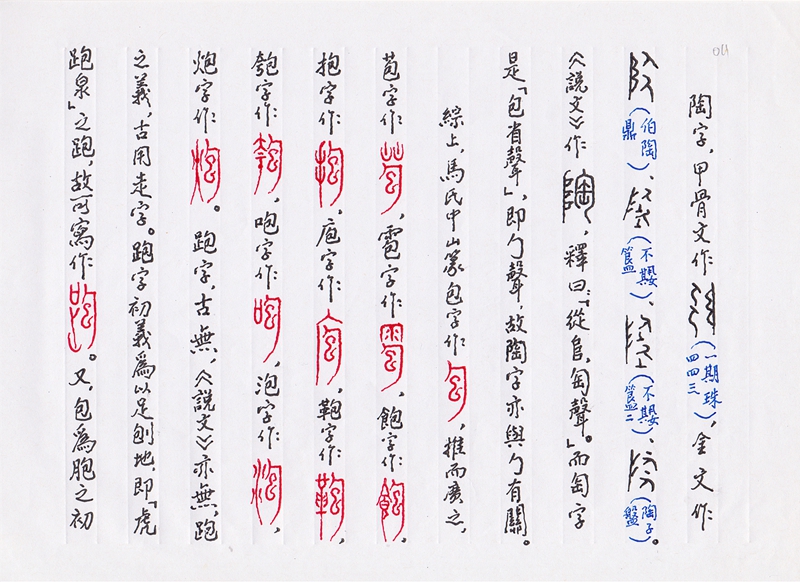 陶字，甲骨文作（一期珠四四三），金文作
（伯陶鼎）、（不𡢁簋）、（不𡢁簋二）、（陶子盤）。
《說文》作，釋曰：「從𨸏，匋聲。」而匋字
是「包省聲」，即勹聲，故陶字亦與勹有關。
綜上，馬氏中山篆包字作，推而廣之，
苞字作，雹字作，飽字作，
抱字作，庖字作，鞄字作，
匏字作，咆字作，泡字作，
炮字作。跑字，古無，《說文》亦無，跑
之義，古用走字。跑字初義為以足刨地，即「虎
跑泉」之跑，故可寫作。又，包為胞之初